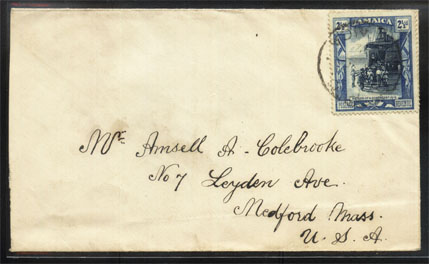 JAMAICA
2½
Mr Ansell A. Colebrooke
No 7 Leyden Ave.
Medford Mass.
U. S. A.